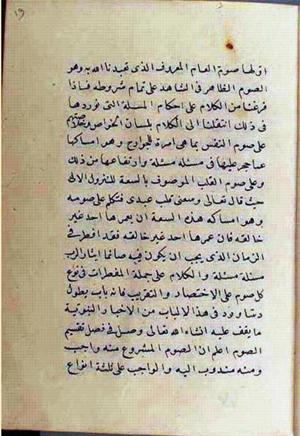 اولها صوم العام المعروف الذي تعبدنا الله به وهو
الصوم الظاهر في الشاهد على تمام شروطه فاذا
فرغنا من الكلام على احكام المسئلة التي نوردها
في ذلك انتقلنا الى الكلام بلسان الخواص
على صوم النفس بما هي امرة للجوارح وهو امساكها
عما حجر عليها في مسئلة مسئلة وارتفاعها من ذلك
وعلى صوم القلب الموصوف بالسعة للنزول الالهي
حيث قال تعالى وسعني قلب عبدي فنتكلم على صومه
وهو امساكه هذه السعة ان يعمرها احد غير
خالقه فان عمرها احد غير خالقه فقد افطر في
الزمان الذي يجب ان يكون فيه صائما ايثارا لربه
مسئلة مسئلة والكلام على جملة المفطرات في نوع
كل صوم على الاختصار والتقريب فانه باب يطول
وسنورد في هذا الباب من الاخبار النبوية
ما يقف عليه ان شاء الله تعالى وصل في فصل تقسيم
الصوم اعلم ان الصوم المشروع منه واجب
ومنه مندوب اليه والواجب على ثلثة انواع